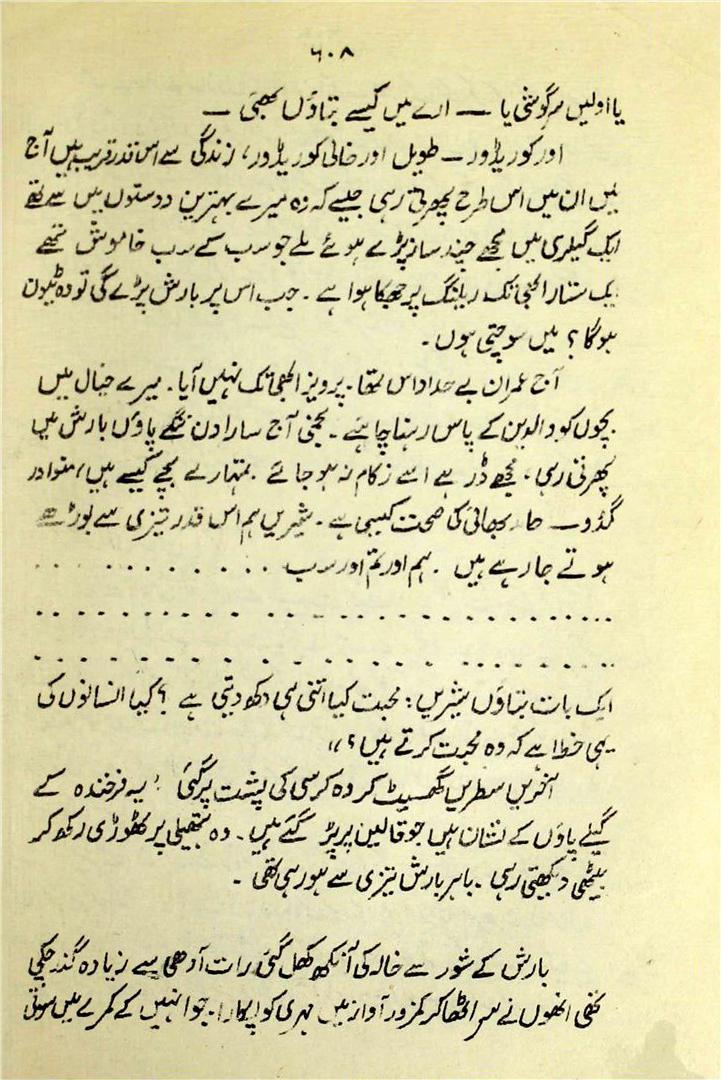 ۶۰۸
یا اولیں سرگوشی یا — ارے میں کیسے بتاؤں بھئی —
اور کوریڈور — طویل اور خالی کوریڈور، زندگی سے اس قدر قریب ہیں آج
میں ان میں اس طرح پھرتی رہی جیسے کہ وہ میرے بہترین دوستوں میں سے تھے
ایک گیلری میں مجھے چند ساز پڑے ہوئے ملے جو سب کے سب خاموش تھے
یک ستار ابھی تک ریلنگ پر جھکا ہوا ہے۔ جب اس پر بارش پڑے گی تو وہ ٹیون
ہوگا؟ میں سوچتی ہوں۔
آج عمران بے حد اداس تھا۔ پرویز ابھی تک نہیں آیا۔ میرے خیال میں
بچوں کو والدین کے پاس رہنا چاہئے۔ بجنی آج سارا دن ننگے پاؤں بارش میں
پھرتی رہی، مجھے ڈر ہے اسے زکام نہ ہو جائے۔ تمہارے بچے کیسے ہیں، منو اور
گڈو — حامد بھائی کی صحت کیسی ہے۔ شیریں ہم اس قدر تیزی سے بوڑھے
ہوتے جا رہے ہیں۔ ہم اور تم اور سب . . . . . . . . . . . .
. . . . . . . . . . . . . . . . . . . . . . . . .
. . . . . . . . . . . . . . . . . . . . . . .
ایک بات بتاؤں شیریں: محبت کیا اتنی ہی دکھ دیتی ہے؟ کیا انسانوں کی
یہی خطا ہے کہ وہ محبت کرتے ہیں؟"
آخریں سطریں گھسیٹ کر وہ کرسی کی پشت پر گئی "یہ فرخندہ کے
گیلے پاؤں کے نشان ہیں جو قالین پر پڑ گئے ہیں۔ وہ ہتھیلی پر ٹھوڑی رکھ کر
بیٹھی دیکھتی رہی۔ باہر بارش تیزی سے ہو رہی تھی۔
بارش کے شور سے خالہ کی آنکھ کھل گئی رات آدھی سے زیادہ گذر چکی
تھی انھوں نے سر اٹھا کر کمزور آواز میں مہری کو پکارا۔ جو انہیں کے کمرے میں سوتی